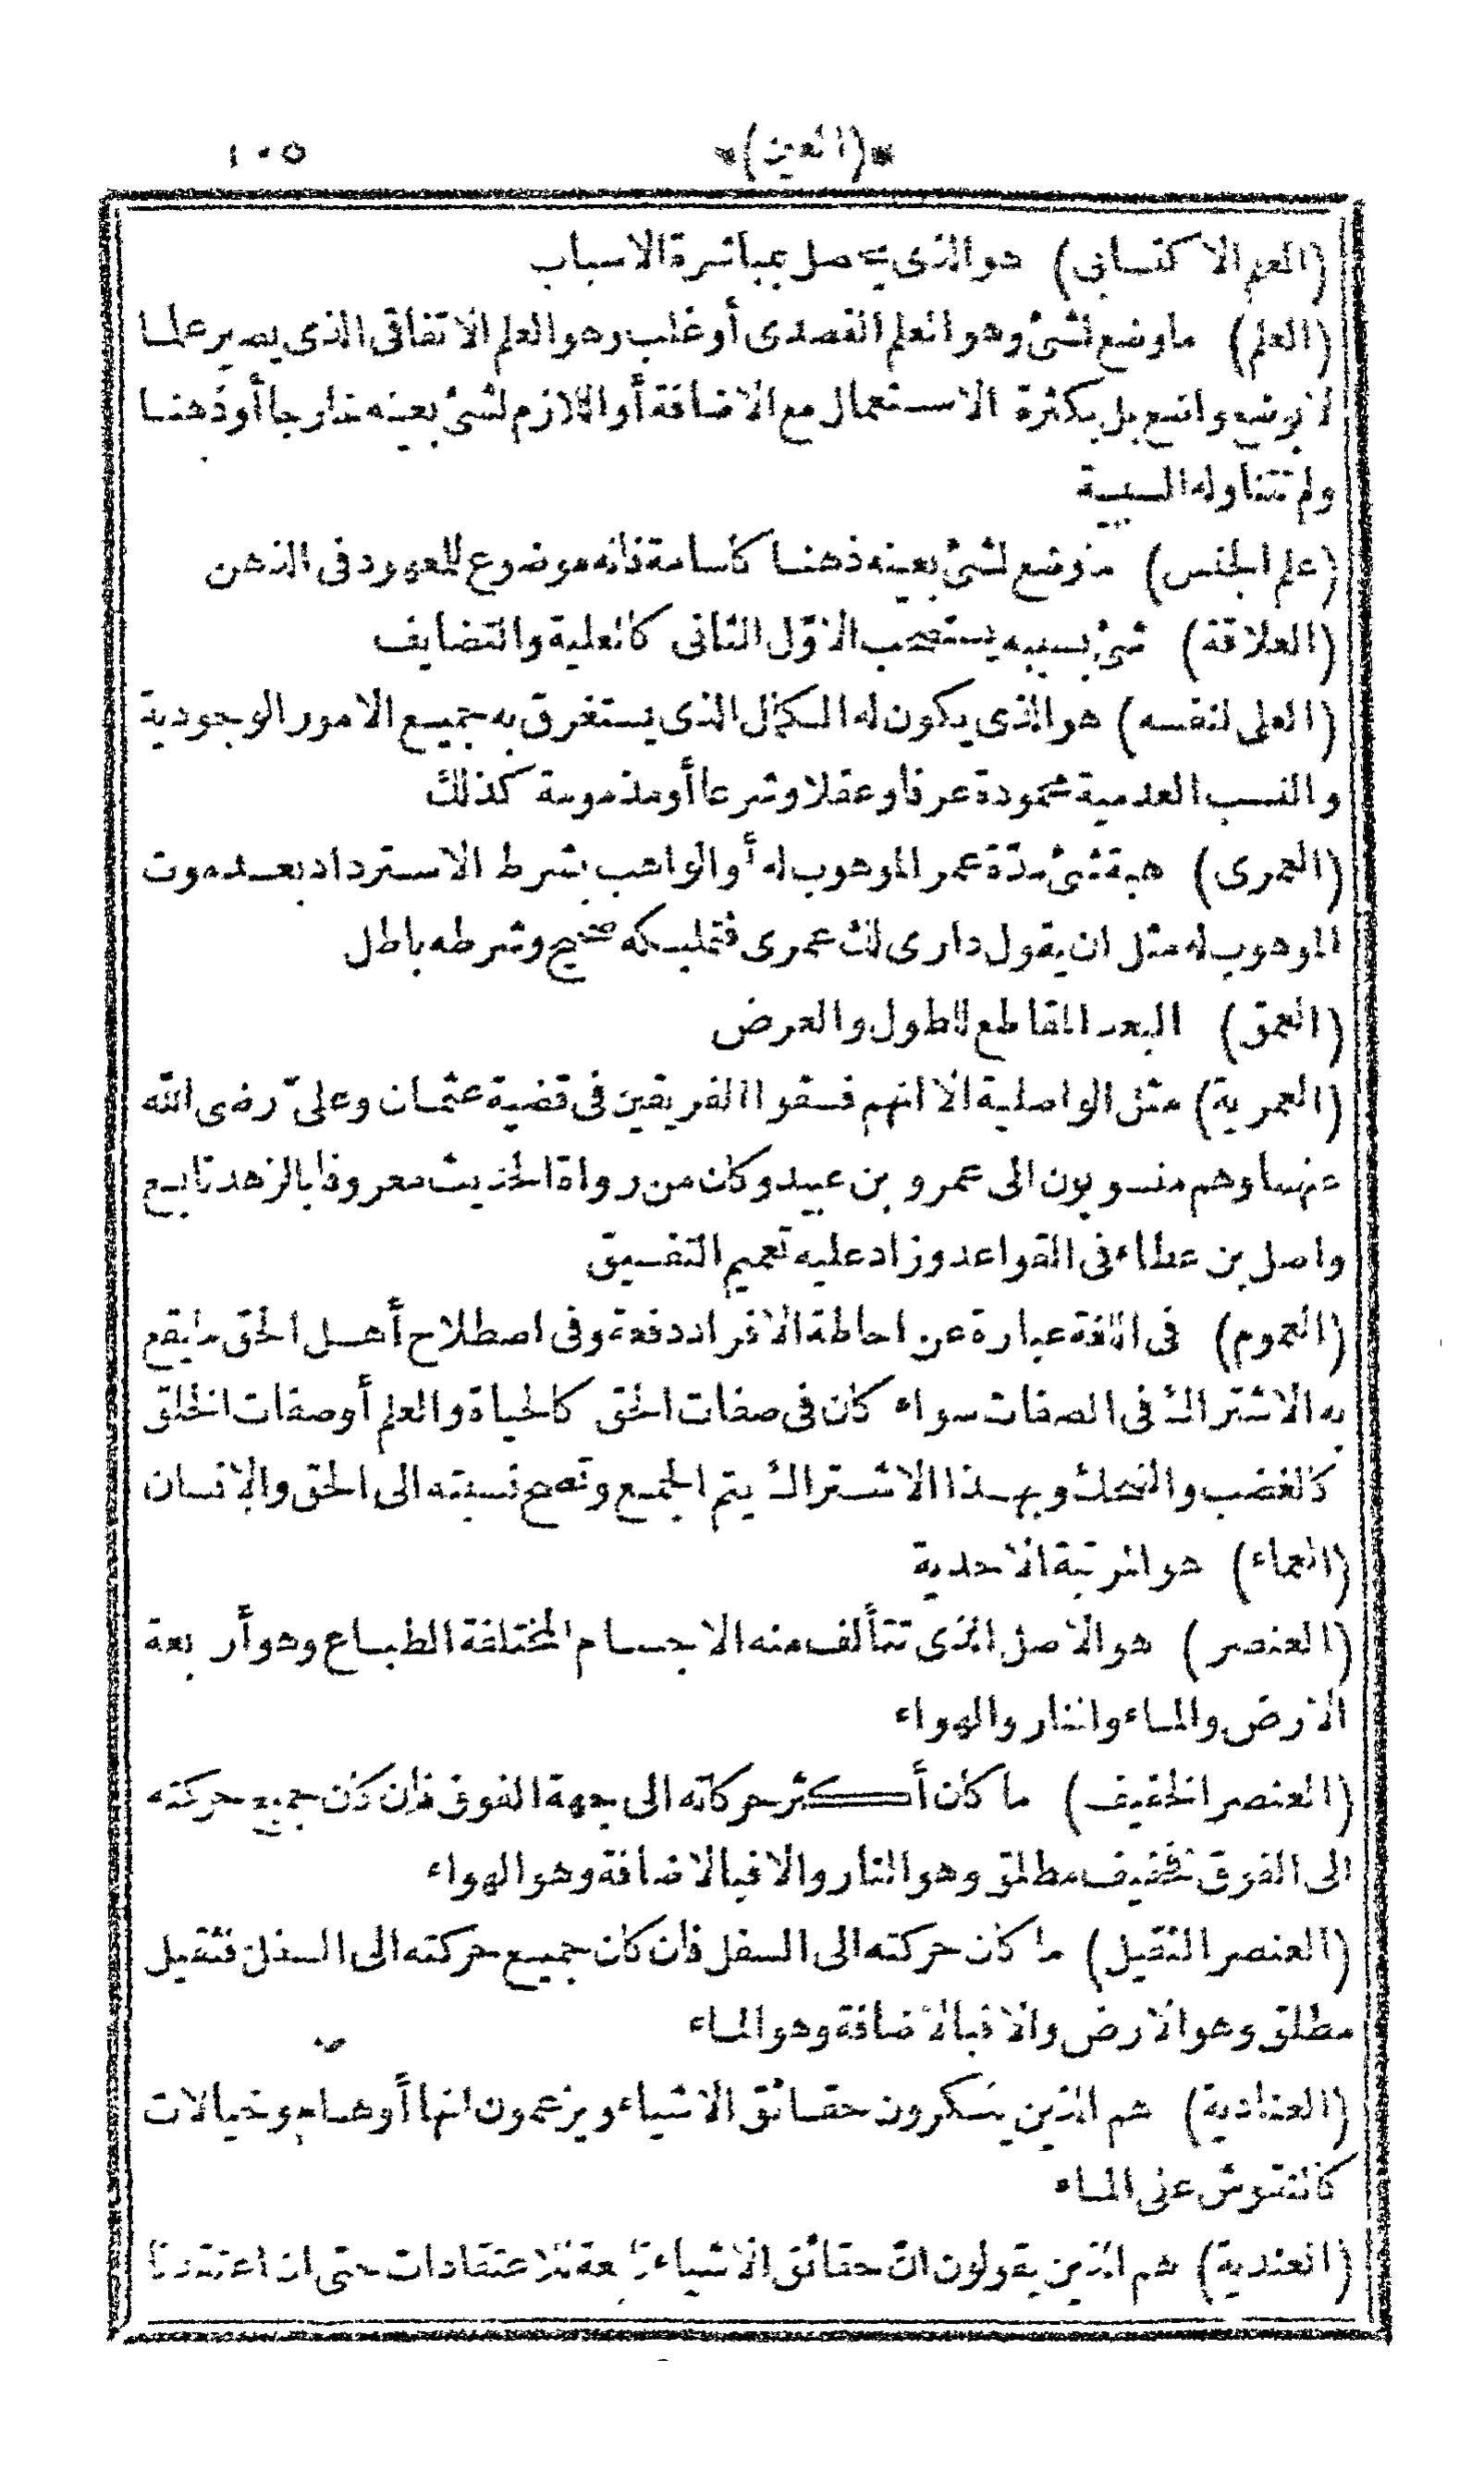 *(العين)* ١٠٥
(العلم الاكتسابى) هو الذى يحصل بمباشرة الاسباب
(العلم) ماوضع لشئ وهو العلم القصدى أو غلب وهو العلم الاتفاقى الذى يصير علما
لا بوضع واضع بل بكثرة الاستعمال مع الاضافة أو اللازم لشئ بعينه خارجا أو ذهنا
ولم تتناوله السببية
(علم الجنس) ما وضع لشئ بعينه ذهنا كاسامة فانه موضوع للمعهود فى الذهن
(العلاقة) شئ بسببه يستصحب الاوّل الثانى كالعلية والتضايف
(العلى لنفسه) هو الذى يكون له الكمال الذى يستغرق به جميع الامور الوجودية
والنسب العدمية محمودة عرفا وعقلا وشرعا أو مذمومة كذلك
(العمرى) هبة شئ مدّة عمر الموهوب له أو الواهب بشرط الاسترداد بعد موت
الموهوب له مثل ان يقول دارى لك عمرى فتمليكه صحيح وشرطه باطل
(العمق) البعد المقاطع للطول والعرض
(العمرية) مثل الواصلية الا انهم فسقوا الفريقين فى قضية عثمان وعلىّ رضى الله
عنهما وهم منسوبون الى عمرو بن عبيد وكان من رواة الحديث معروفا بالزهد تابع
واصل بن عطاء فى القواعد وزاد عليه تعميم التفسيق
(العموم) فى اللغة عبارة عن احاطة الافراد دفعة وفى اصطلاح أهل الحق ما يقع
به الاشتراك فى الصفات سواء كان فى صفات الحق كالحياة والعلم أو صفات الخلق
كالغضب والضحك وبهذا الاشتراك يتم الجمع وتصح نسبته الى الحق والانسان
(العماء) هو المرتبة الاحدية
(العنصر) هو الاصل الذى تتألف منه الاجسام المختلفة الطباع وهو أربعة
الارض والماء والنار والهواء
(العنصر الخفيف) ما كان أكثر حركاته الى جهة الفوق فان كان جميع حركته
الى الفوق نخفيف مطلق وهو النار والا فبالاضافة وهو الهواء
(العنصر الثقيل) ما كان حركته الى السفل فان كان جميع حركته الى السفل فثقيل
مطلق وهو الارض والا فبالاضافة وهو الماء
(العنادية) هم الذين ينكرون حقائق الاشياء ويزعمون انها أوهام وخيالات
كالنقوش على الماء
(العندية) هم الذين يقولون انّ حقائق الاشياء تابعة للاعتقادات حتى ان اعتقدنا